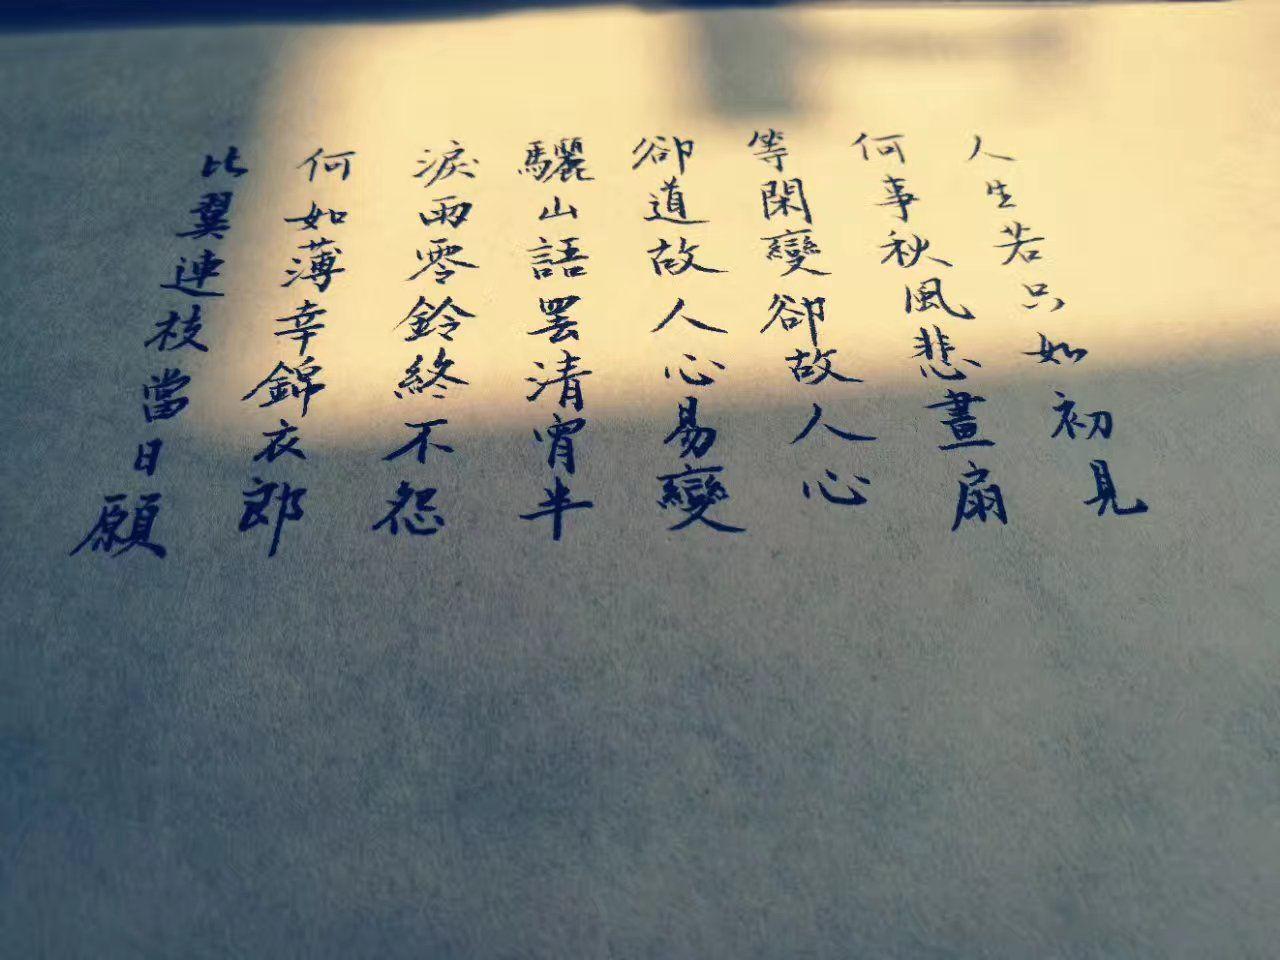 人生若只如初見
何事秋風悲畫扇
等閑變卻故人心
卻道故人心易變
驪山語罷清宵半
淚雨零鈴終不怨
何如薄幸錦衣郎
比翼連枝當日願